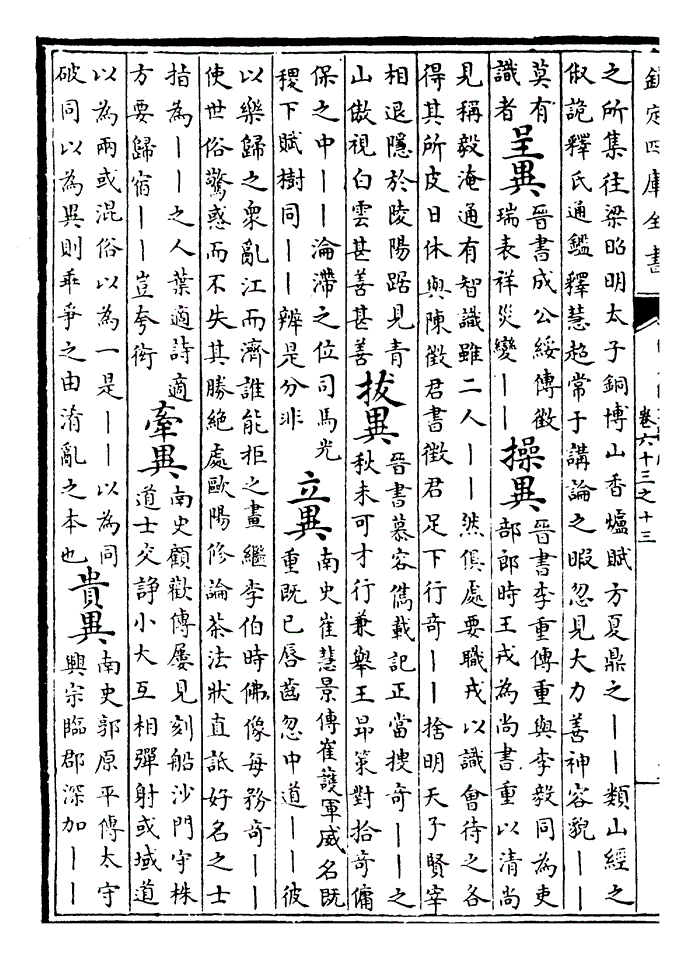 欽定四庫全書
卷六十三之十三
之所集往梁昭明太子銅博山香爐賦方夏鼎之||類山經之
俶詭釋氏通鑑釋慧超常于講論之暇忽見大力善神容貌||
莫有
識者
呈異
晉書成公綏傳徵
瑞表祥災變||
操異
晉書李重傳重與李毅同為吏
部郎時王戎為尚書重以清尚
見稱毅淹通有智識雖二人||然俱處要職戎以識會待之各
得其所皮日休與陳徵君書徵君足下行奇||捨明天子賢宰
相退隱於陵陽踞見青
山傲視白雲甚善甚善
拔異
晉書慕容儁載記正當搜奇||之
秋未可才行兼舉王昻策對拾奇傭
保之中||淪滯之位司馬光
稷下賦樹同||辨是分非
立異
南史崔慧景傳崔護軍威名既
重既已唇齒忽中道||彼
以樂歸之衆亂江而濟誰能拒之畫繼李伯時佛像每務奇||
使世俗驚惑而不失其勝絕處歐陽修論茶法狀直詆好名之士
指為||之人葉適詩適
方要歸宿||豈夸衒
牽異
南史顧歡傳屢見刻船沙門守株
道士交諍小大互相彈射或域道
以為兩或混俗以為一是||以為同
破同以為異則乖爭之由淆亂之本也
貴異
南史郭原平傳太守
興宗臨郡深加||